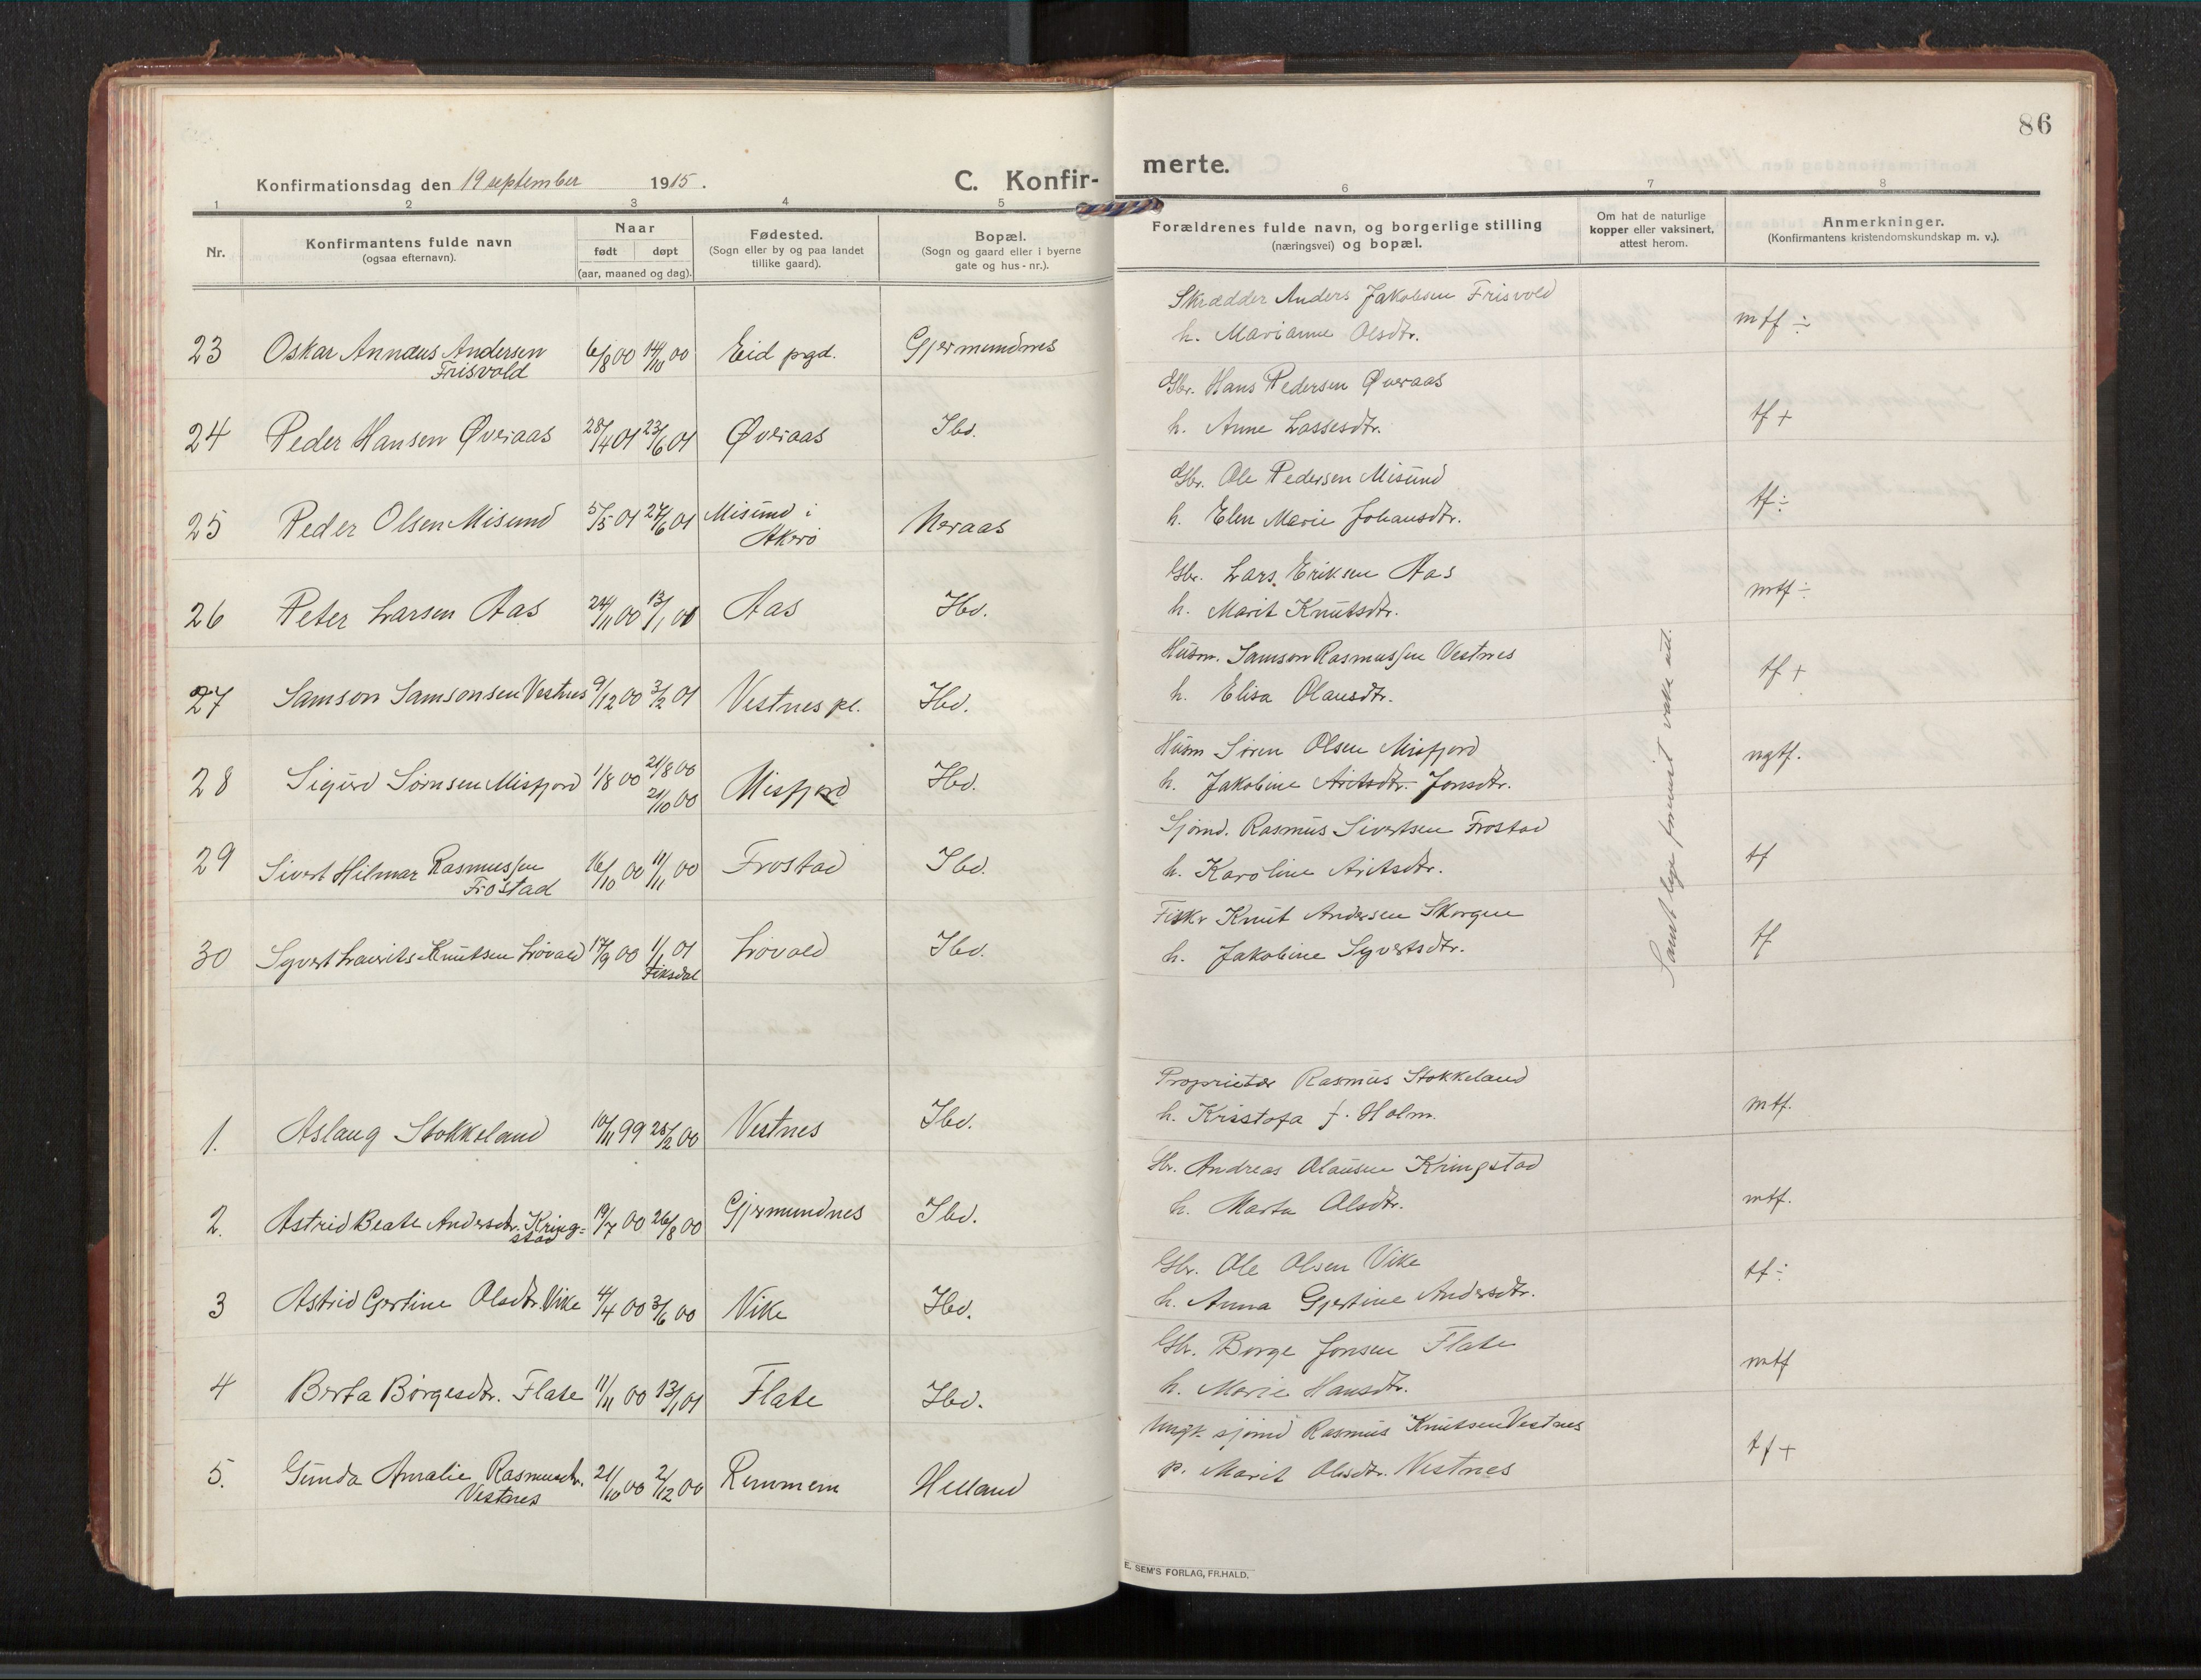 86
Konfirmationsdag den 19 september 1915.
C. Konfirmerte.
1 2 3 4 5 6 7 8
Nr.
Konfirmantens fulde navn
(ogsaa efternavn).
Naar
født døpt
(aar, maaned og dag).
Fødested.
(Sogn eller by og paa landet
tillike gaard).
Bopæl.
(Sogn og gaard eller i byerne
gate og hus-nr.).
Forældrenes fulde navn, og borgerlige stilling
(næringsvei) og bopæl.
Om hat de naturlige
kopper eller vaksinert,
attest herom.
Anmerkninger.
(Konfirmantens kristendomskundskap m. v.).
23 Oskar Annæus Andersen Frisvold 6/8 00 14/10 00 Eid pgd. Gjermundnes
Skrædder Anders Jakobsen Frisvold
h. Marianne Olsdtr.
mtf ÷
24 Peder Hansen Øveraas 28/4 01 23/6 01 Øveraas Ibd.
Gbr. Hans Pedersen Øveraas
h. Anne Lassesdtr.
tf +
25 Peder Olsen Misund 5/5 01 27/6 01 Misund i Akerø Neraas
Gbr. Ole Pedersen Misund
h. Elen Marie Johansdtr.
tf ÷
26 Peter Larsen Aas 24/11 00 13/1 01 Aas Ibd.
Gbr. Lars Eriksen Aas
h. Marit Knutsdtr.
mtf ÷
27 Samson Samsonsen Vestnes 9/12 00 3/2 01 Vestnes pl. Ibd.
Husm. Samson Rasmussen Vestnes
h. Elisa Olausdtr.
tf +
28 Sigurd Sørnsen Misfjord 1/8 00 21/8 00
21/10 00 Misfjord Ibd.
Husm Søren Olsen Misfjord
h. Jakobine Aritsdtr. Jonsdtr.
ngtf.
29 Sivert Hilmar Rasmussen Frostad 16/10 00 11/11 00 Frostad Ibd.
Sjømd. Rasmus Sivertsen Frostad
h. Karoline Aritsdtr.
tf
30 Syvert Laurits Knutsen Løvald 17/9 00 1/1 01 Fiksdal Løvald Ibd.
Fisker Knut Andersen Skorgen
h. Jakobine Syvertsdtr.
tf
Samt lege forevist vaks. att.
1. Aslaug Stokkeland 10/11 99 25/2 00 Vestnes Ibd.
Proprietær Rasmus Stokkeland
h. Kristofa f. Holm.
mtf.
2. Astrid Beate Andersdtr. Kring=
stad 19/7 00 26/8 00 Gjermundnes Ibd.
Gbr. Andreas Olausen Kringstad
h. Marta Olsdtr.
mtf.
3 Astrid Gjertine Olsdtr. Vike 4/4 00 3/6 00 Vike Ibd.
Gbr. Ole Olsen Vike
h. Anna Gjertine Andersdtr.
tf ÷
4 Berta Børgesdtr. Flate 11/11 00 13/1 01 Flate Ibd.
Gbr. Børge Jonsen Flate
h. Marie Hansdtr.
mtf
5. Gunda Amalie Rasmusdtr. Vestnes 21/10 00 2/12 00 Remmem Helland
Ungk. sjømd Rasmus Knutsen Vestnes
p. Marit Olsdtr. Vestnes
tf +
E. SEM'S FORLAG, FR.HALD.